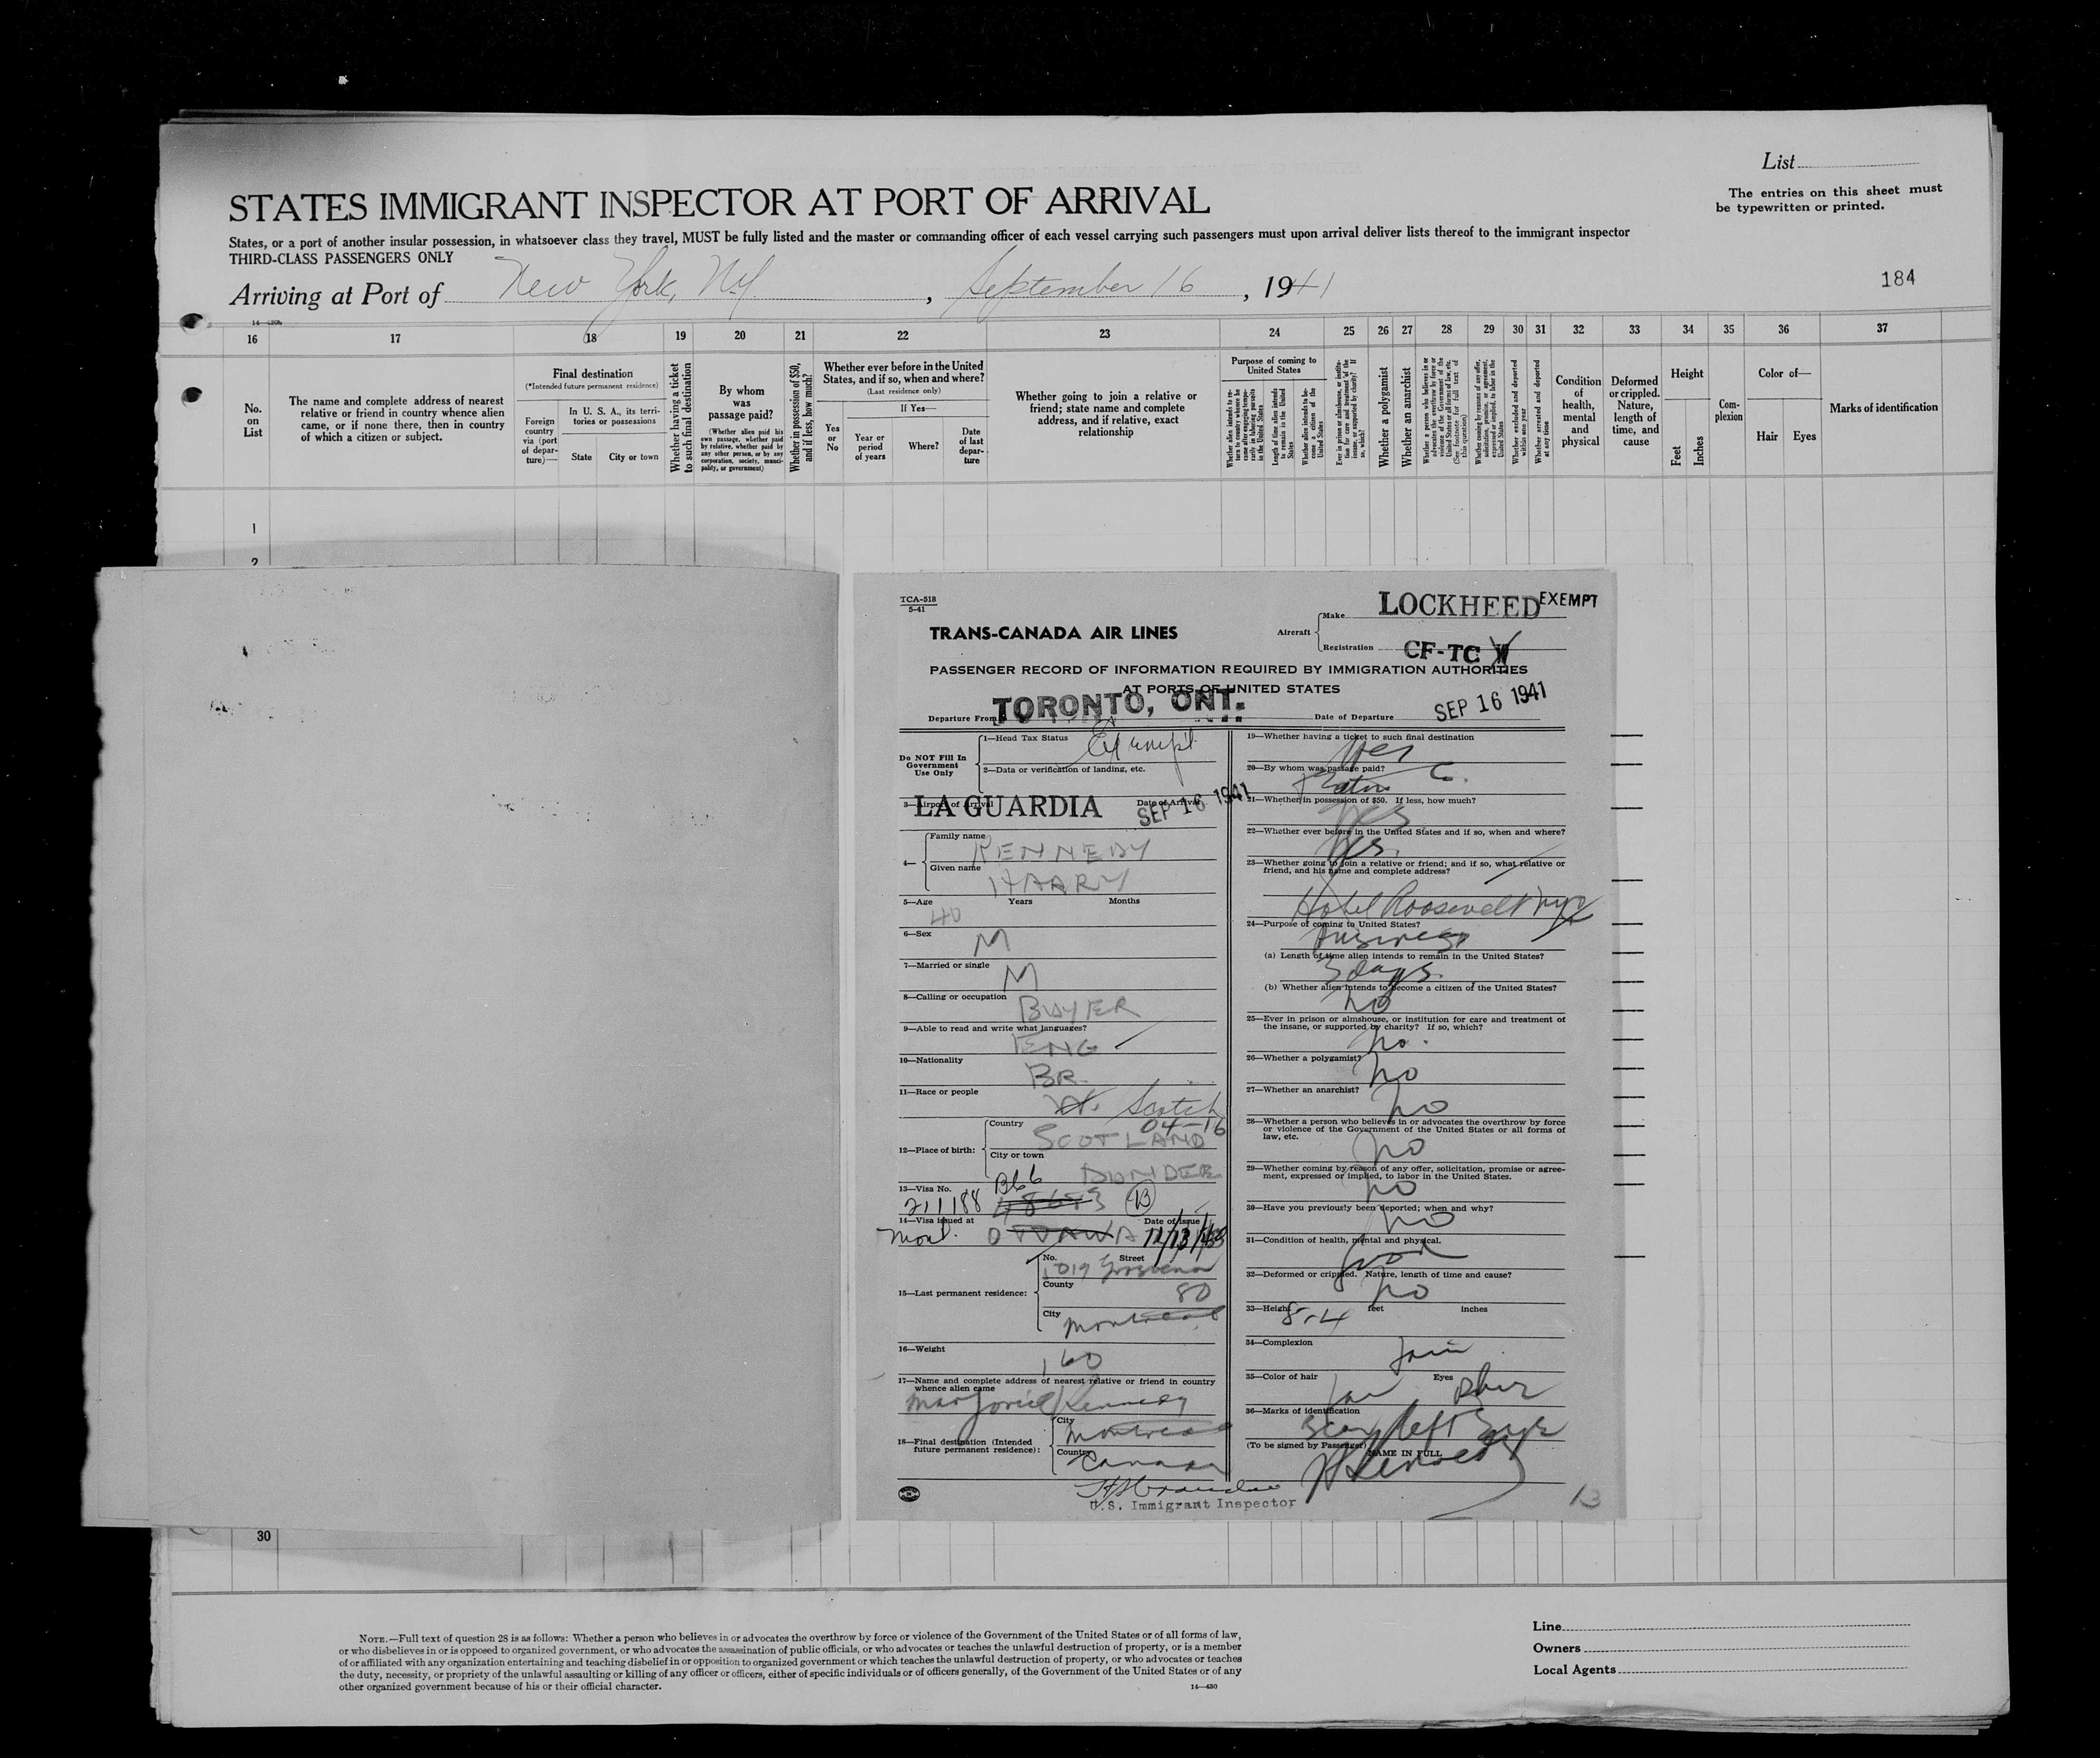 List
The entries on this sheet must
be typewritten or printed.
STATES IMMIGRANT INSPECTOR AT PORT OF ARRIVAL
States, or a port of another insular possession, in whatsoever class they travel, MUST be fully listed and the master or commanding officer of each vessel carrying such passengers must upon arrival deliver lists thereof to the immigrant inspector
THIRD-CLASS PASSENGERS ONLY
Arriving at Port of New York, N.Y. , September 16 , 1941
184
16 17 18 19 20 21 22 23 24 25 26 27 28 29 30 31 32 33 34 35 36 37
No. on List
The name and complete address of nearest relative or friend in country whence alien came, or if none there, then in country of which a citizen or subject.
Final destination
(*Intended future permanent residence)
Foreign country via (port of departure)—
In U. S. A., its territories or possessions
State
City or town
Whether having a ticket to such final destination
By whom was passage paid?
(Whether alien paid his own passage, whether paid by relative, whether paid by any other person, or by any corporation, society, municipality, or government)
Whether in possession of $50, and if less, how much?
Whether ever before in the United States, and if so, when and where?
(Last residence only)
Yes or No
If Yes—
Year or period of years
Where?
Date of last departure
Whether going to join a relative or friend; state name and complete address, and if relative, exact relationship
Purpose of coming to United States
Length of time alien intends to remain in the United States
Whether alien intends to become a citizen of the United States
Whether a polygamist
Whether an anarchist
Whether excluded and deported within one year
Whether arrested and deported at any time
Condition of health, mental and physical
Deformed or crippled. Nature, length of time, and cause
Height
Feet
Inches
Complexion
Color of—
Hair
Eyes
Marks of identification
1
2
TCA-518
5-41
TRANS-CANADA AIR LINES
Aircraft
Make LOCKHEED EXEMPT
Registration CF-TC
PASSENGER RECORD OF INFORMATION REQUIRED BY IMMIGRATION AUTHORITIES
AT PORTS OF UNITED STATES
Departure From TORONTO, ONT.
Date of Departure SEP 16 1941
Do NOT Fill In
Government
Use Only
1—Head Tax Status Exempt
2—Data or verification of landing, etc.
3—Airport of Arrival LA GUARDIA Date of Arrival SEP 16 1941
4—
Family name KENNEDY
Given name HARRY
5—Age 40 Years Months
6—Sex M
7—Married or single M
8—Calling or occupation BUYER
9—Able to read and write what languages? ENG
10—Nationality BR.
11—Race or people Scotch
04-16
12—Place of birth:
Country SCOTLAND
City or town DUNDEE
13—Visa No. 211188 B66 B
14—Visa issued at Mont. OTTAWA Date of issue
15—Last permanent residence:
No. Street 1019 Grosvenor
County 80
City Montreal
16—Weight 160
17—Name and complete address of nearest relative or friend in country
whence alien came
Marjorie Kennedy
18—Final destination (Intended
future permanent residence):
City Montreal
Country Canada
U.S. Immigrant Inspector
19—Whether having a ticket to such final destination
Yes
20—By whom was passage paid?
Eaton Co.
21—Whether in possession of $50. If less, how much?
Yes
22—Whether ever before in the United States and if so, when and where?
Yes.
23—Whether going to join a relative or friend; and if so, what relative or
friend, and his name and complete address?
Hotel Roosevelt NYC
24—Purpose of coming to United States?
Business
(a) Length of time alien intends to remain in the United States?
3 days.
(b) Whether alien intends to become a citizen of the United States?
no
25—Ever in prison or almshouse, or institution for care and treatment of
the insane, or supported by charity? If so, which?
no.
26—Whether a polygamist?
no
27—Whether an anarchist?
no
28—Whether a person who believes in or advocates the overthrow by force
or violence of the Government of the United States or all forms of
law, etc.
no
29—Whether coming by reason of any offer, solicitation, promise or agree-
ment, expressed or implied, to labor in the United States.
no
30—Have you previously been deported; when and why?
no
31—Condition of health, mental and physical.
Good
32—Deformed or crippled. Nature, length of time and cause?
no
33—Height feet inches
34—Complexion
Fair
35—Color of hair Eyes Blue
36—Marks of identification
Scar left Eye
(To be signed by Passenger) NAME IN FULL
H Kennedy
13
30
NOTE.—Full text of question 28 is as follows: Whether a person who believes in or advocates the overthrow by force or violence of the Government of the United States or of all forms of law,
or who disbelieves in or is opposed to organized government, or who advocates the assassination of public officials, or who advocates or teaches the unlawful destruction of property, or is a member
of or affiliated with any organization entertaining and teaching disbelief in or opposition to organized government or which teaches the unlawful destruction of property, or who advocates or teaches
the duty, necessity, or propriety of the unlawful assaulting or killing of any officer or officers, either of specific individuals or of officers generally, of the Government of the United States or of any
other organized government because of his or their official character.
14—430
Line
Owners
Local Agents